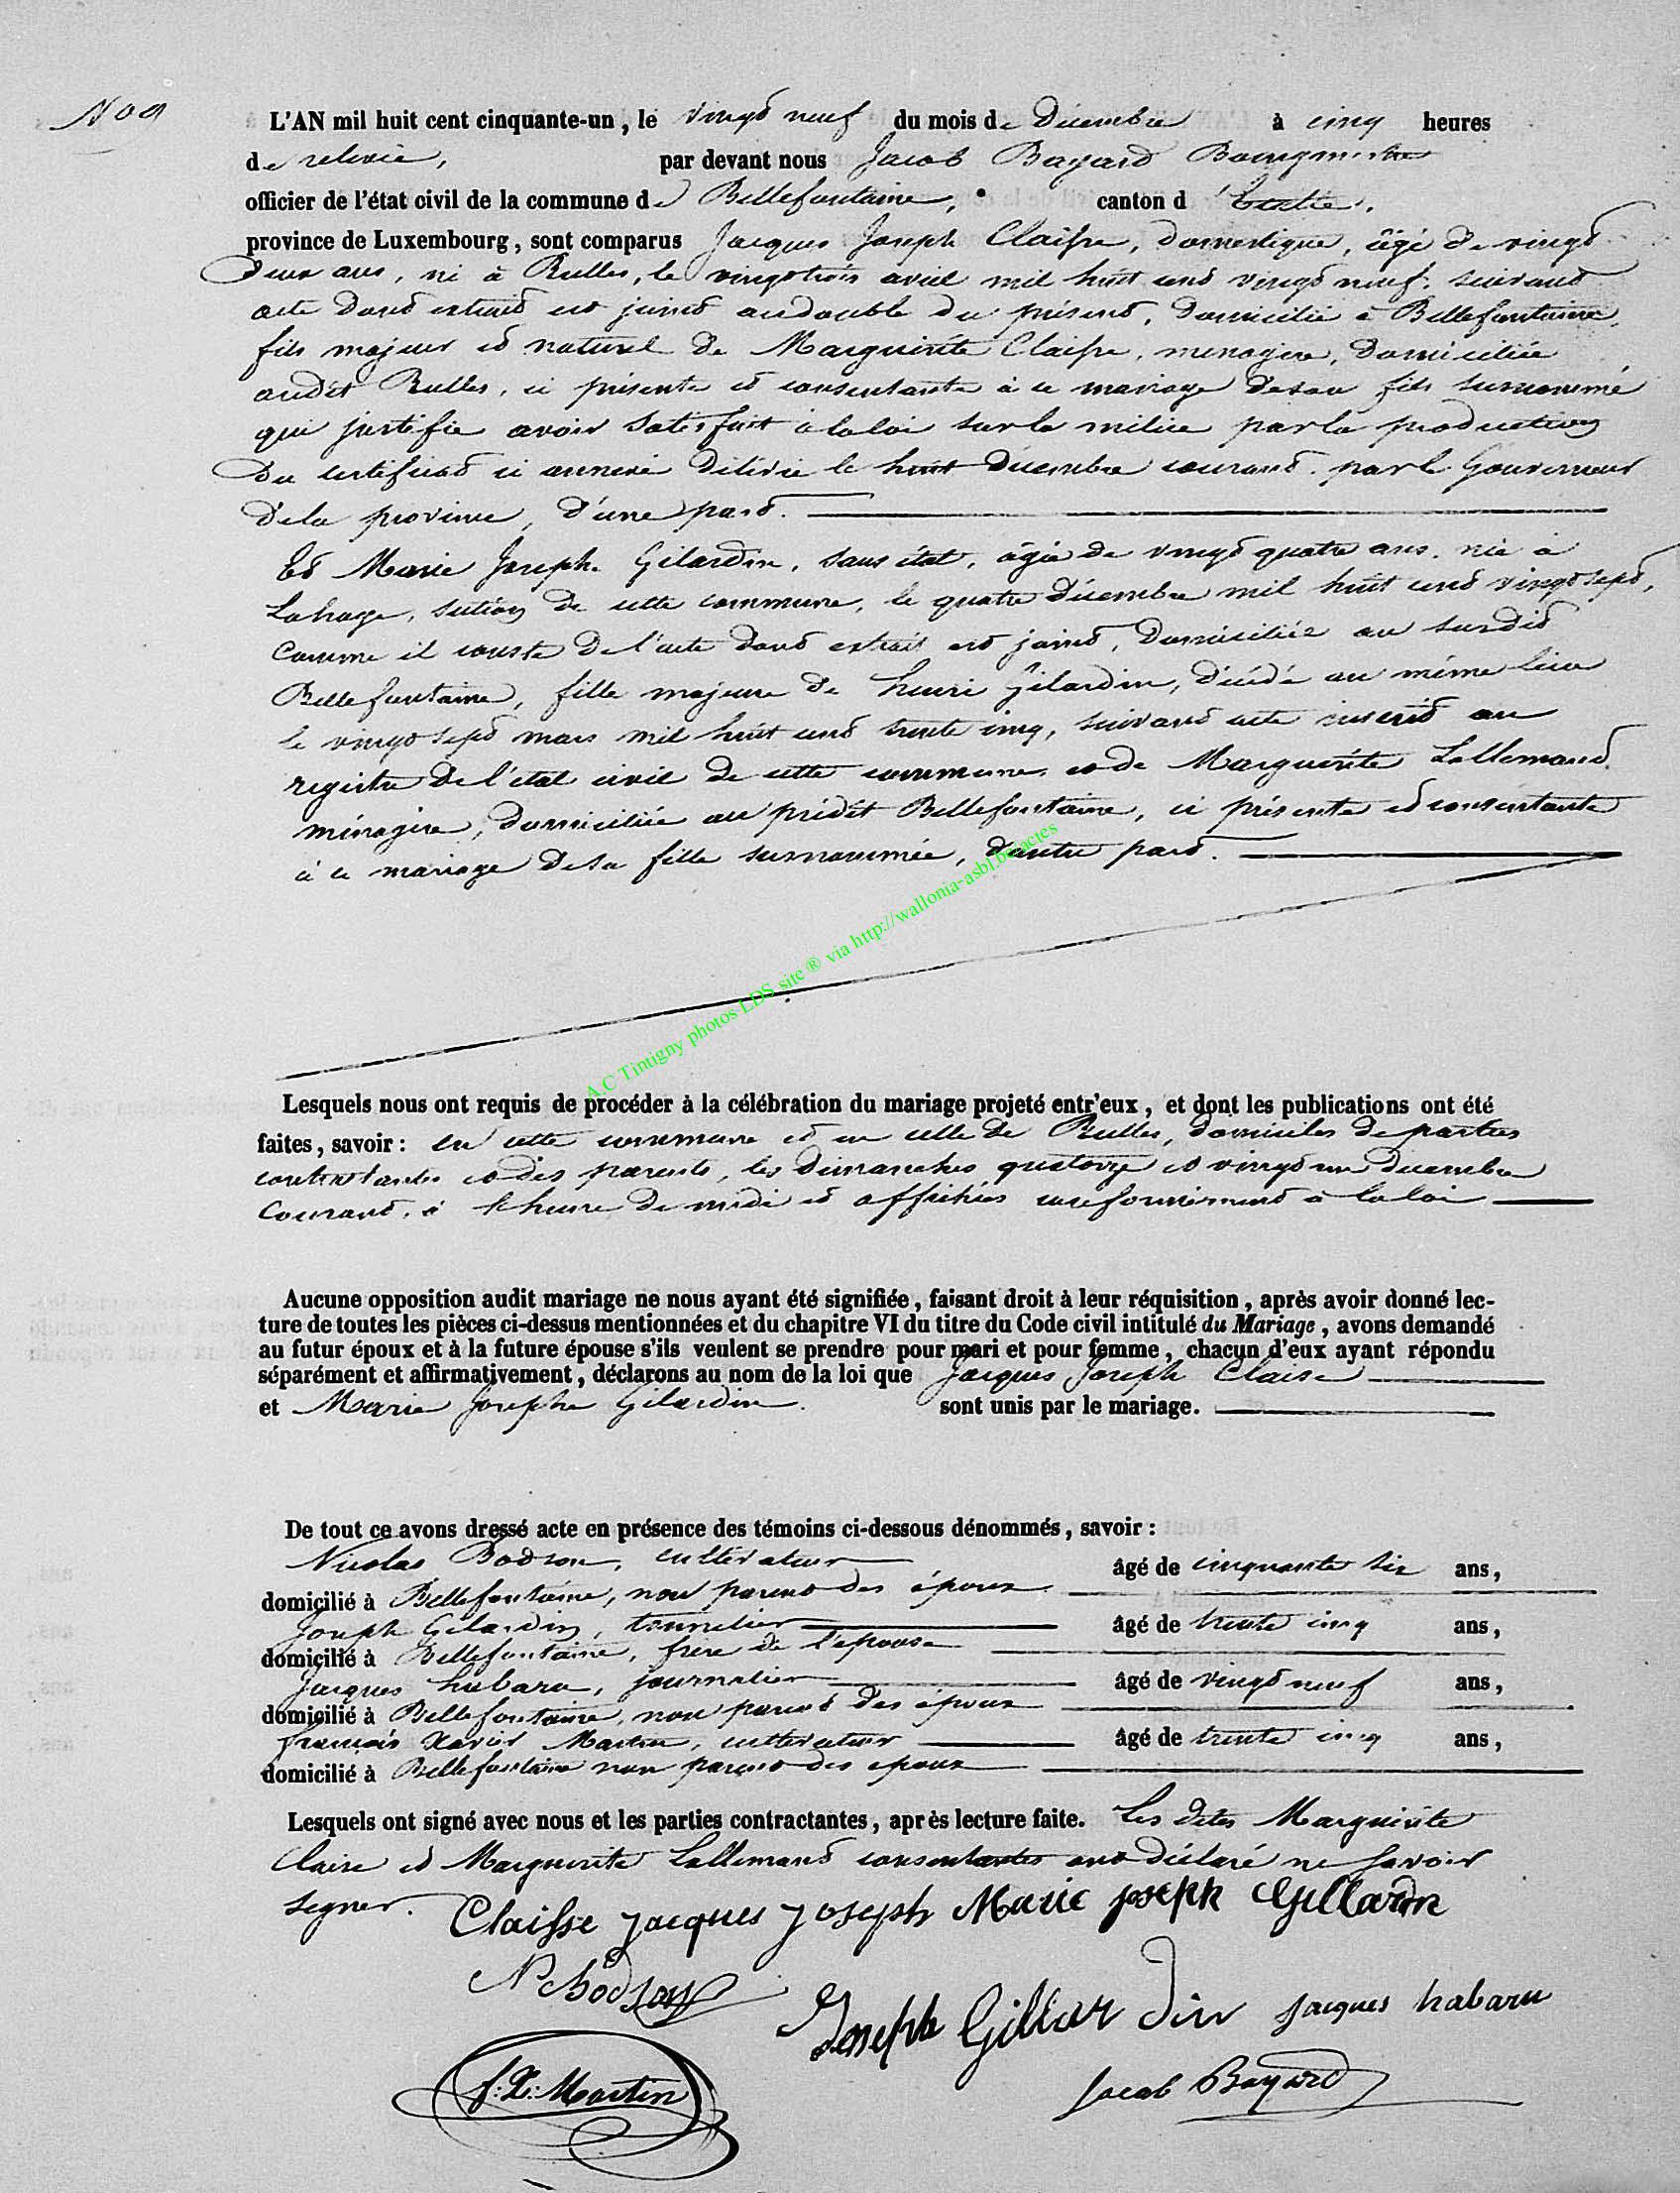 No 9
L'AN mil huit cent cinquante-un, le vingt neuf du mois de Décembre à cinq heures
de relevée, par devant nous Jacob Bayard Bourgmestre
officier de l'état civil de la commune de Bellefontaine, canton d'Etalle,
province de Luxembourg, sont comparus Jacques Joseph Claisse, domestique, âgé de vingt
deux ans, né à Rulles, le vingt trois avril mil huit cent vingt neuf, suivant
acte dont extrait est joint au double du présent, domicilié à Bellefontaine,
fils majeur et naturel de Marguerite Claisse, ménagère, domiciliée
audit Rulles, ci présente et consentante à ce mariage de son fils surnommé
qui justifie avoir satisfait à la loi sur la milice par la production
du certificat ci annexé délivré le huit Décembre courant par le Gouverneur
de la province, d'une part.
Et Marie Joseph Gilardin, sans état, âgée de vingt quatre ans, née à
Lahage, section de cette commune, le quatre Décembre mil huit cent vingt sept,
comme il conste de l'acte dont extrait est joint, domiciliée au surdit
Bellefontaine, fille majeure de henri Gilardin, décédé au même lieu
le vingt sept mars mil huit cent trente cinq, suivant acte inscrit au
registre de l'état civil de cette commune, et de Marguerite Lallemand
ménagère, domiciliée au prédit Bellefontaine, ci présente et consentante
à ce mariage de sa fille surnommée, d'autre part.
A.C Tintigny photos LDS site ® via http://wallonia-asbl.be/actes
Lesquels nous ont requis de procéder à la célébration du mariage projeté entr'eux, et dont les publications ont été
faites, savoir : en cette commune et en celle de Rulles, domiciles de parties
contractantes et des parents, les dimanches quatorze et vingt un décembre
courant, à l'heure de midi et affichées conformément à la loi
Aucune opposition audit mariage ne nous ayant été signifiée, faisant droit à leur réquisition, après avoir donné lec-
ture de toutes les pièces ci-dessus mentionnées et du chapitre VI du titre du Code civil intitulé du Mariage, avons demandé
au futur époux et à la future épouse s'ils veulent se prendre pour mari et pour femme, chacun d'eux ayant répondu
séparément et affirmativement, déclarons au nom de la loi que Jacques Joseph Claise
et Marie Josephe Gilardin. sont unis par le mariage.
De tout ce avons dressé acte en présence des témoins ci-dessous dénommés, savoir :
Nicolas Bodson, cultivateur âgé de cinquante six ans,
domicilié à Bellefontaine, non parent des époux
Joseph Gilardin, tonnelier âgé de trente cinq ans,
domicilié à Bellefontaine, frère de l'épouse
Jacques habaru, journalier âgé de vingt neuf ans,
domicilié à Bellefontaine, non parent des époux
françois Xavier Martin, cultivateur âgé de trente cinq ans,
domicilié à Bellefontaine non parent des époux
Lesquels ont signé avec nous et les parties contractantes, après lecture faite. Les dites Marguerite
Claise et Marguerite Lallemand consentantes ont déclaré ne savoir
signer.
Claisse jacques joseph Marie joseph Gillardin
N Bodson
Joseph Gillardin jacques habaru
f: X: Martin
Jacob Bayard